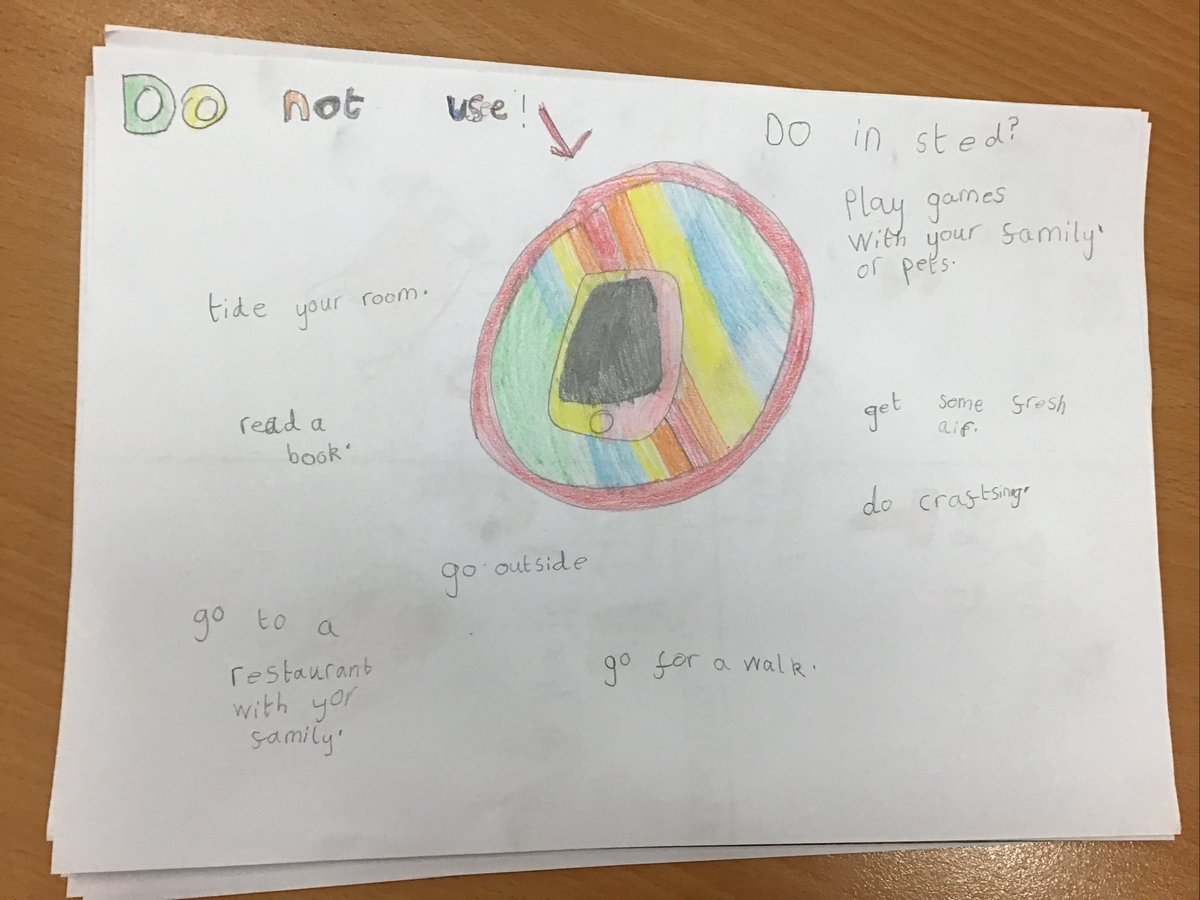 Do not use!
Do in sted?
Play games
with your family.
or pets.
tide your room.
get some fresh
air.
read a
book.
do craftsing.
go outside
go to a
restaurant
with yor
family.
go for a walk.